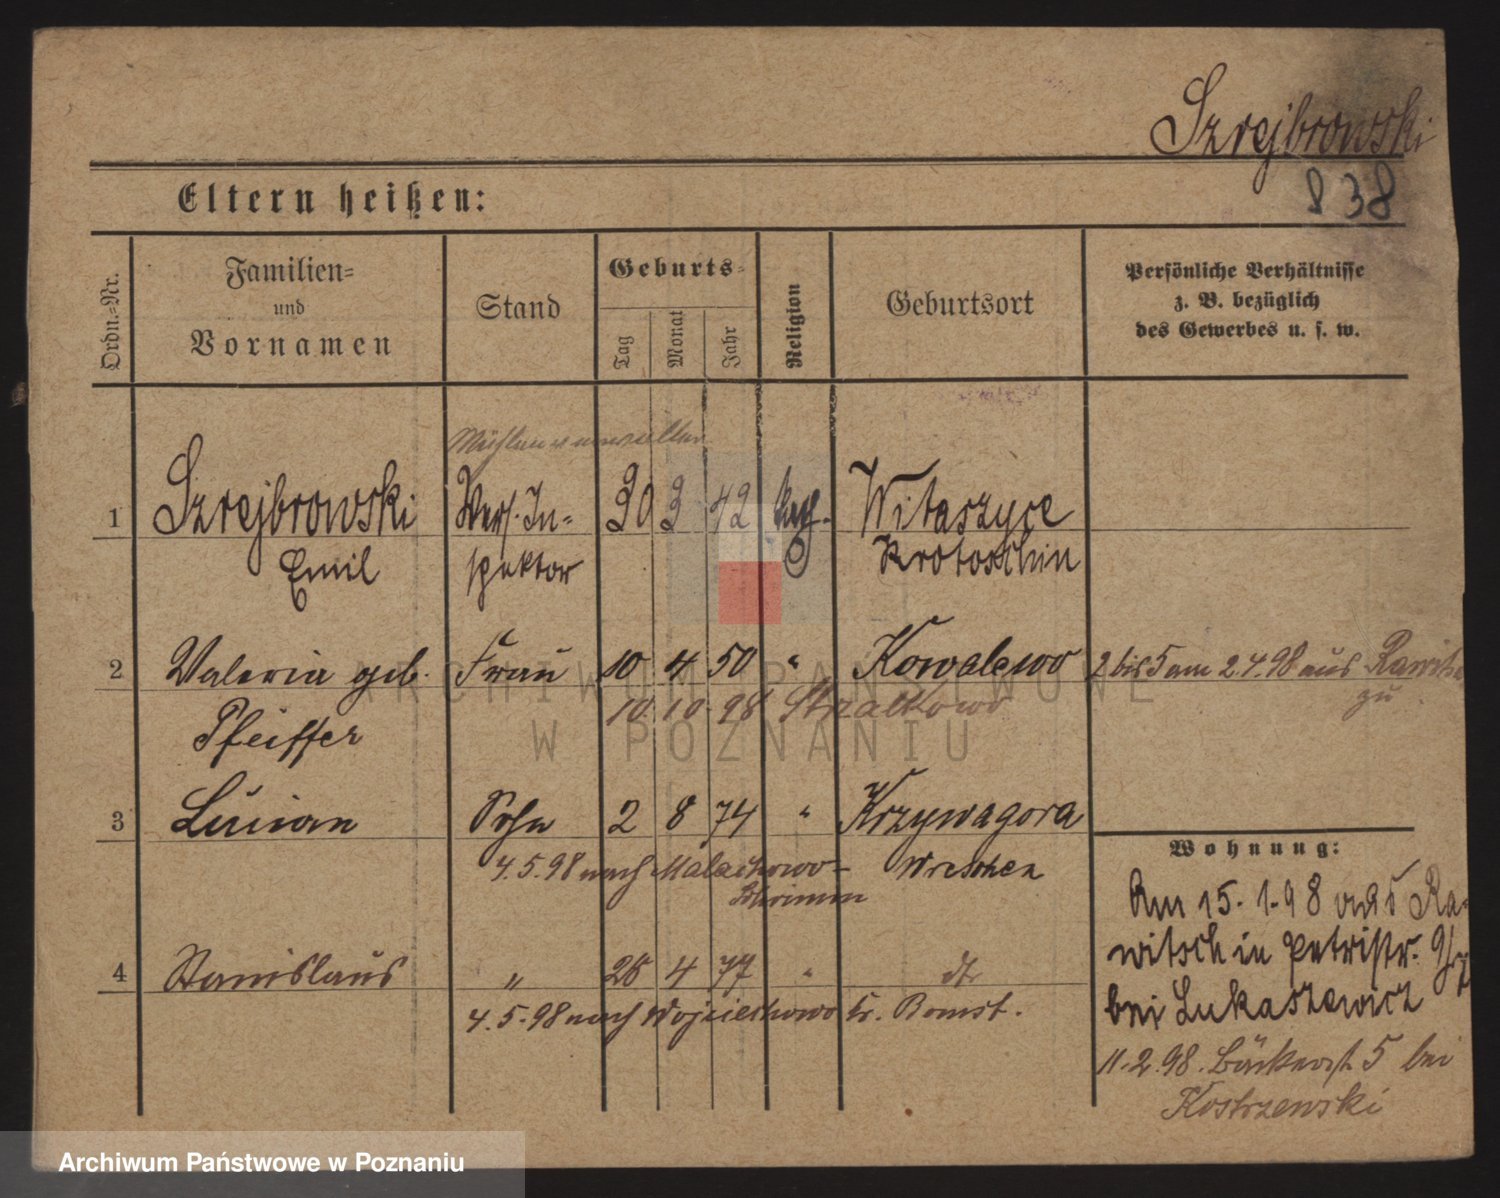 Szrejbrowski
838
Eltern heißen:
Ordn.-Nr.
Familien-
und
Vornamen
Stand
Geburts-
Tag
Monat
Jahr
Religion
Geburtsort
Persönliche Verhältnisse
z. B. bezüglich
des Gewerbes u. s. w.
Mühlenverwalter
1 Szrejbrowski Vers. In- 30 3 42 kath. Witaszyce
Emil spektor Krotoschin
2 Valeria geb. Frau 10 4 50 " Kowalewo 2 bis 5 am 2.4.98 aus Rawitsch
zu
10. 10. 98 Stralkowo
Pfeiffer
3 Lucian Sohn 2 8 74 " Krzywagora
4.5.98 nach Malachowo- Wreschen
Schrimm
4 Stanislaus " 4 77 " dt
4.5.98 nach Wojciechowo Kr. Bomst.
Wohnung:
Am 15. 1. 98 aus Ra-
witsch in Petristr.
bei Lukaszewicz
11.2.98. Bäckerst. 5 bei
Kostrzewski
ARCHIWUM PAŃSTWOWE
W POZNANIU
Archiwum Państwowe w Poznaniu